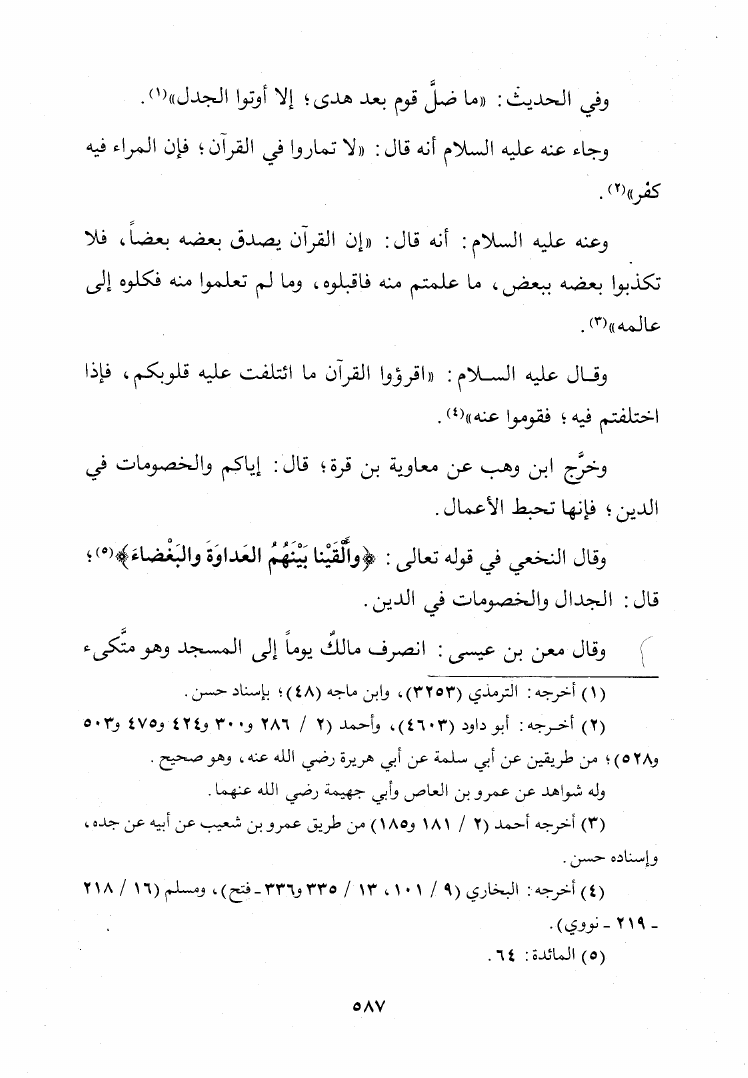 وفي الحديث : «ما ضلَّ قوم بعد هدى؛ إلا أوتوا الجدل»(١).
وجاء عنه عليه السلام أنه قال : «لا تماروا في القرآن؛ فإن المراء فيه
كفر»(٢).
وعنه عليه السلام : أنه قال : «إن القرآن يصدق بعضه بعضاً، فلا
تكذبوا بعضه ببعض، ما علمتم منه فاقبلوه، وما لم تعلموا منه فكلوه إلى
عالمه»(٣).
وقال عليه السلام : «اقرؤوا القرآن ما ائتلفت عليه قلوبكم، فإذا
اختلفتم فيه؛ فقوموا عنه»(٤).
وخرَّج ابن وهب عن معاوية بن قرة؛ قال : إياكم والخصومات في
الدين؛ فإنها تحبط الأعمال.
وقال النخعي في قوله تعالى : ﴿وأَلْقَيْنا بَيْنَهُمُ العَداوَةَ والبَغْضاءَ﴾(٥)؛
قال : الجدال والخصومات في الدين.
وقال معن بن عيسى : انصرف مالكٌ يوماً إلى المسجد وهو متَّكىء
(١) أخرجه : الترمذي (٣٢٥٣)، وابن ماجه (٤٨)؛ بإسناد حسن.
(٢) أخرجه : أبو داود (٤٦٠٣)، وأحمد (٢ / ٢٨٦ و٣٠٠ و٤٢٤ و٤٧٥ و٥٠٣
و٥٢٨)؛ من طريقين عن أبي سلمة عن أبي هريرة رضي الله عنه، وهو صحيح.
وله شواهد عن عمرو بن العاص وأبي جهيمة رضي الله عنهما.
(٣) أخرجه أحمد (٢ / ١٨١ و١٨٥) من طريق عمرو بن شعيب عن أبيه عن جده،
وإسناده حسن.
(٤) أخرجه : البخاري (٩ / ١٠١، ١٣ / ٣٣٥ و٣٣٦ - فتح)، ومسلم (١٦ / ٢١٨
- ٢١٩ - نووي).
(٥) المائدة : ٦٤.
٥٨٧